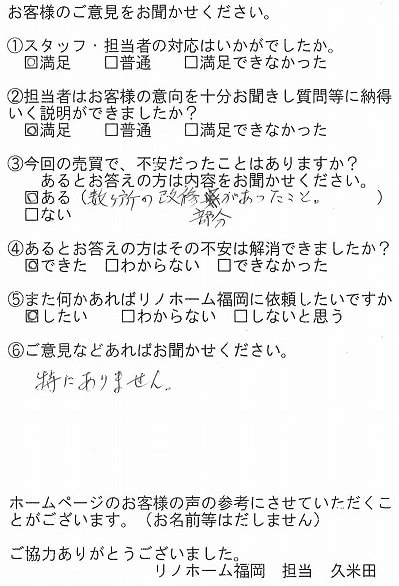 お客様のご意見をお聞かせください。
①スタッフ・担当者の対応はいかがでしたか。
□満足　□普通　□満足できなかった
②担当者はお客様の意向を十分お聞きし質問等に納得
いく説明ができましたか？
□満足　□普通　□満足できなかった
③今回の売買で、不安だったことはありますか？
あるとお答えの方は内容をお聞かせください。
□ある（数ヶ所の改修部分があったこと。）
□ない
④あるとお答えの方はその不安は解消できましたか？
□できた　□わからない　□できなかった
⑤また何かあればリノホーム福岡に依頼したいですか
□したい　□わからない　□しないと思う
⑥ご意見などあればお聞かせください。
特にありません。
ホームページのお客様の声の参考にさせていただくこ
とがございます。（お名前等はだしません）
ご協力ありがとうございました。
リノホーム福岡　担当　久米田